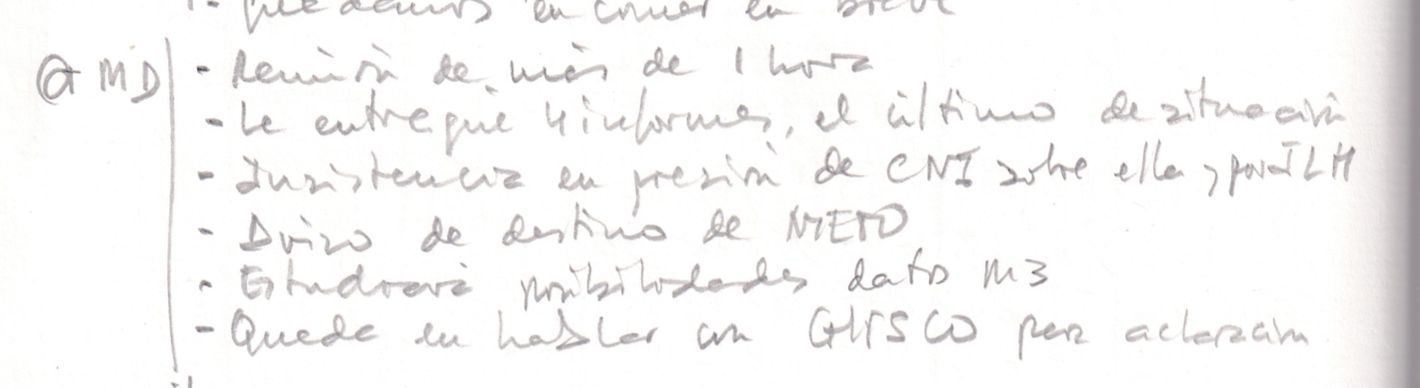 quedamos en comer en breve
@ MD - Reunión de más de 1 hora
- Le entregué 4 informes, el último de situación
- Insistencia en presión de CNI sobre ella y por ILH
- Aviso de destino de NIETO
- Estudiará posibilidades dato M3
- Queda en hablar con para aclaración